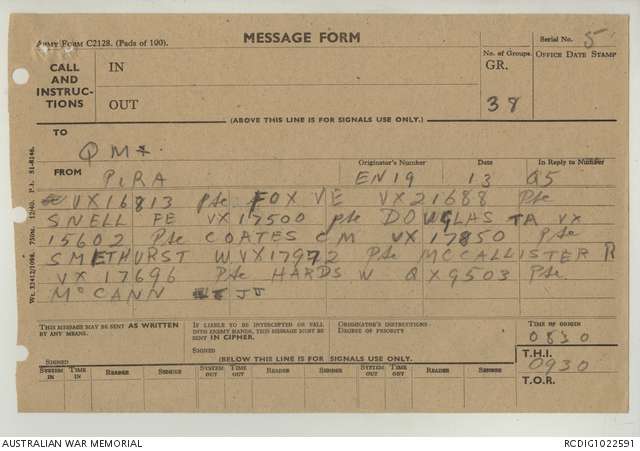 Army Form C2128. (Pads of 100).
MESSAGE FORM
Serial No. 5
CALL AND INSTRUCTIONS
IN
OUT
No. of Groups. GR. 38
OFFICE DATE STAMP
(ABOVE THIS LINE IS FOR SIGNALS USE ONLY.)
TO
QM
FROM
PIRA
Originator's Number
EN19
Date
13
In Reply to Number
Q5
VX16813 Pte FOX VE VX21688 Pte
SNELL FE VX17500 pte DOUGLAS TA VX
15602 Pte COATES CM VX17850 Pte
SMETHURST W VX17972 Pte MCCALLISTER R
VX 17696 Pte HARDS W QX9503 Pte
McCANN JJ
THIS MESSAGE MAY BE SENT AS WRITTEN BY ANY MEANS.
SIGNED
IF LIABLE TO BE INTERCEPTED OR FALL INTO ENEMY HANDS, THIS MESSAGE MUST BE SENT IN CIPHER.
SIGNED
ORIGINATOR'S INSTRUCTIONS
DEGREE OF PRIORITY
TIME OF ORIGIN
0830
T.H.I.
0930
T.O.R.
(BELOW THIS LINE IS FOR SIGNALS USE ONLY.
SYSTEM IN TIME IN READER SENDER SYSTEM OUT TIME OUT READER SENDER SYSTEM OUT TIME OUT READER SENDER
AUSTRALIAN WAR MEMORIAL
RCDIG1022591